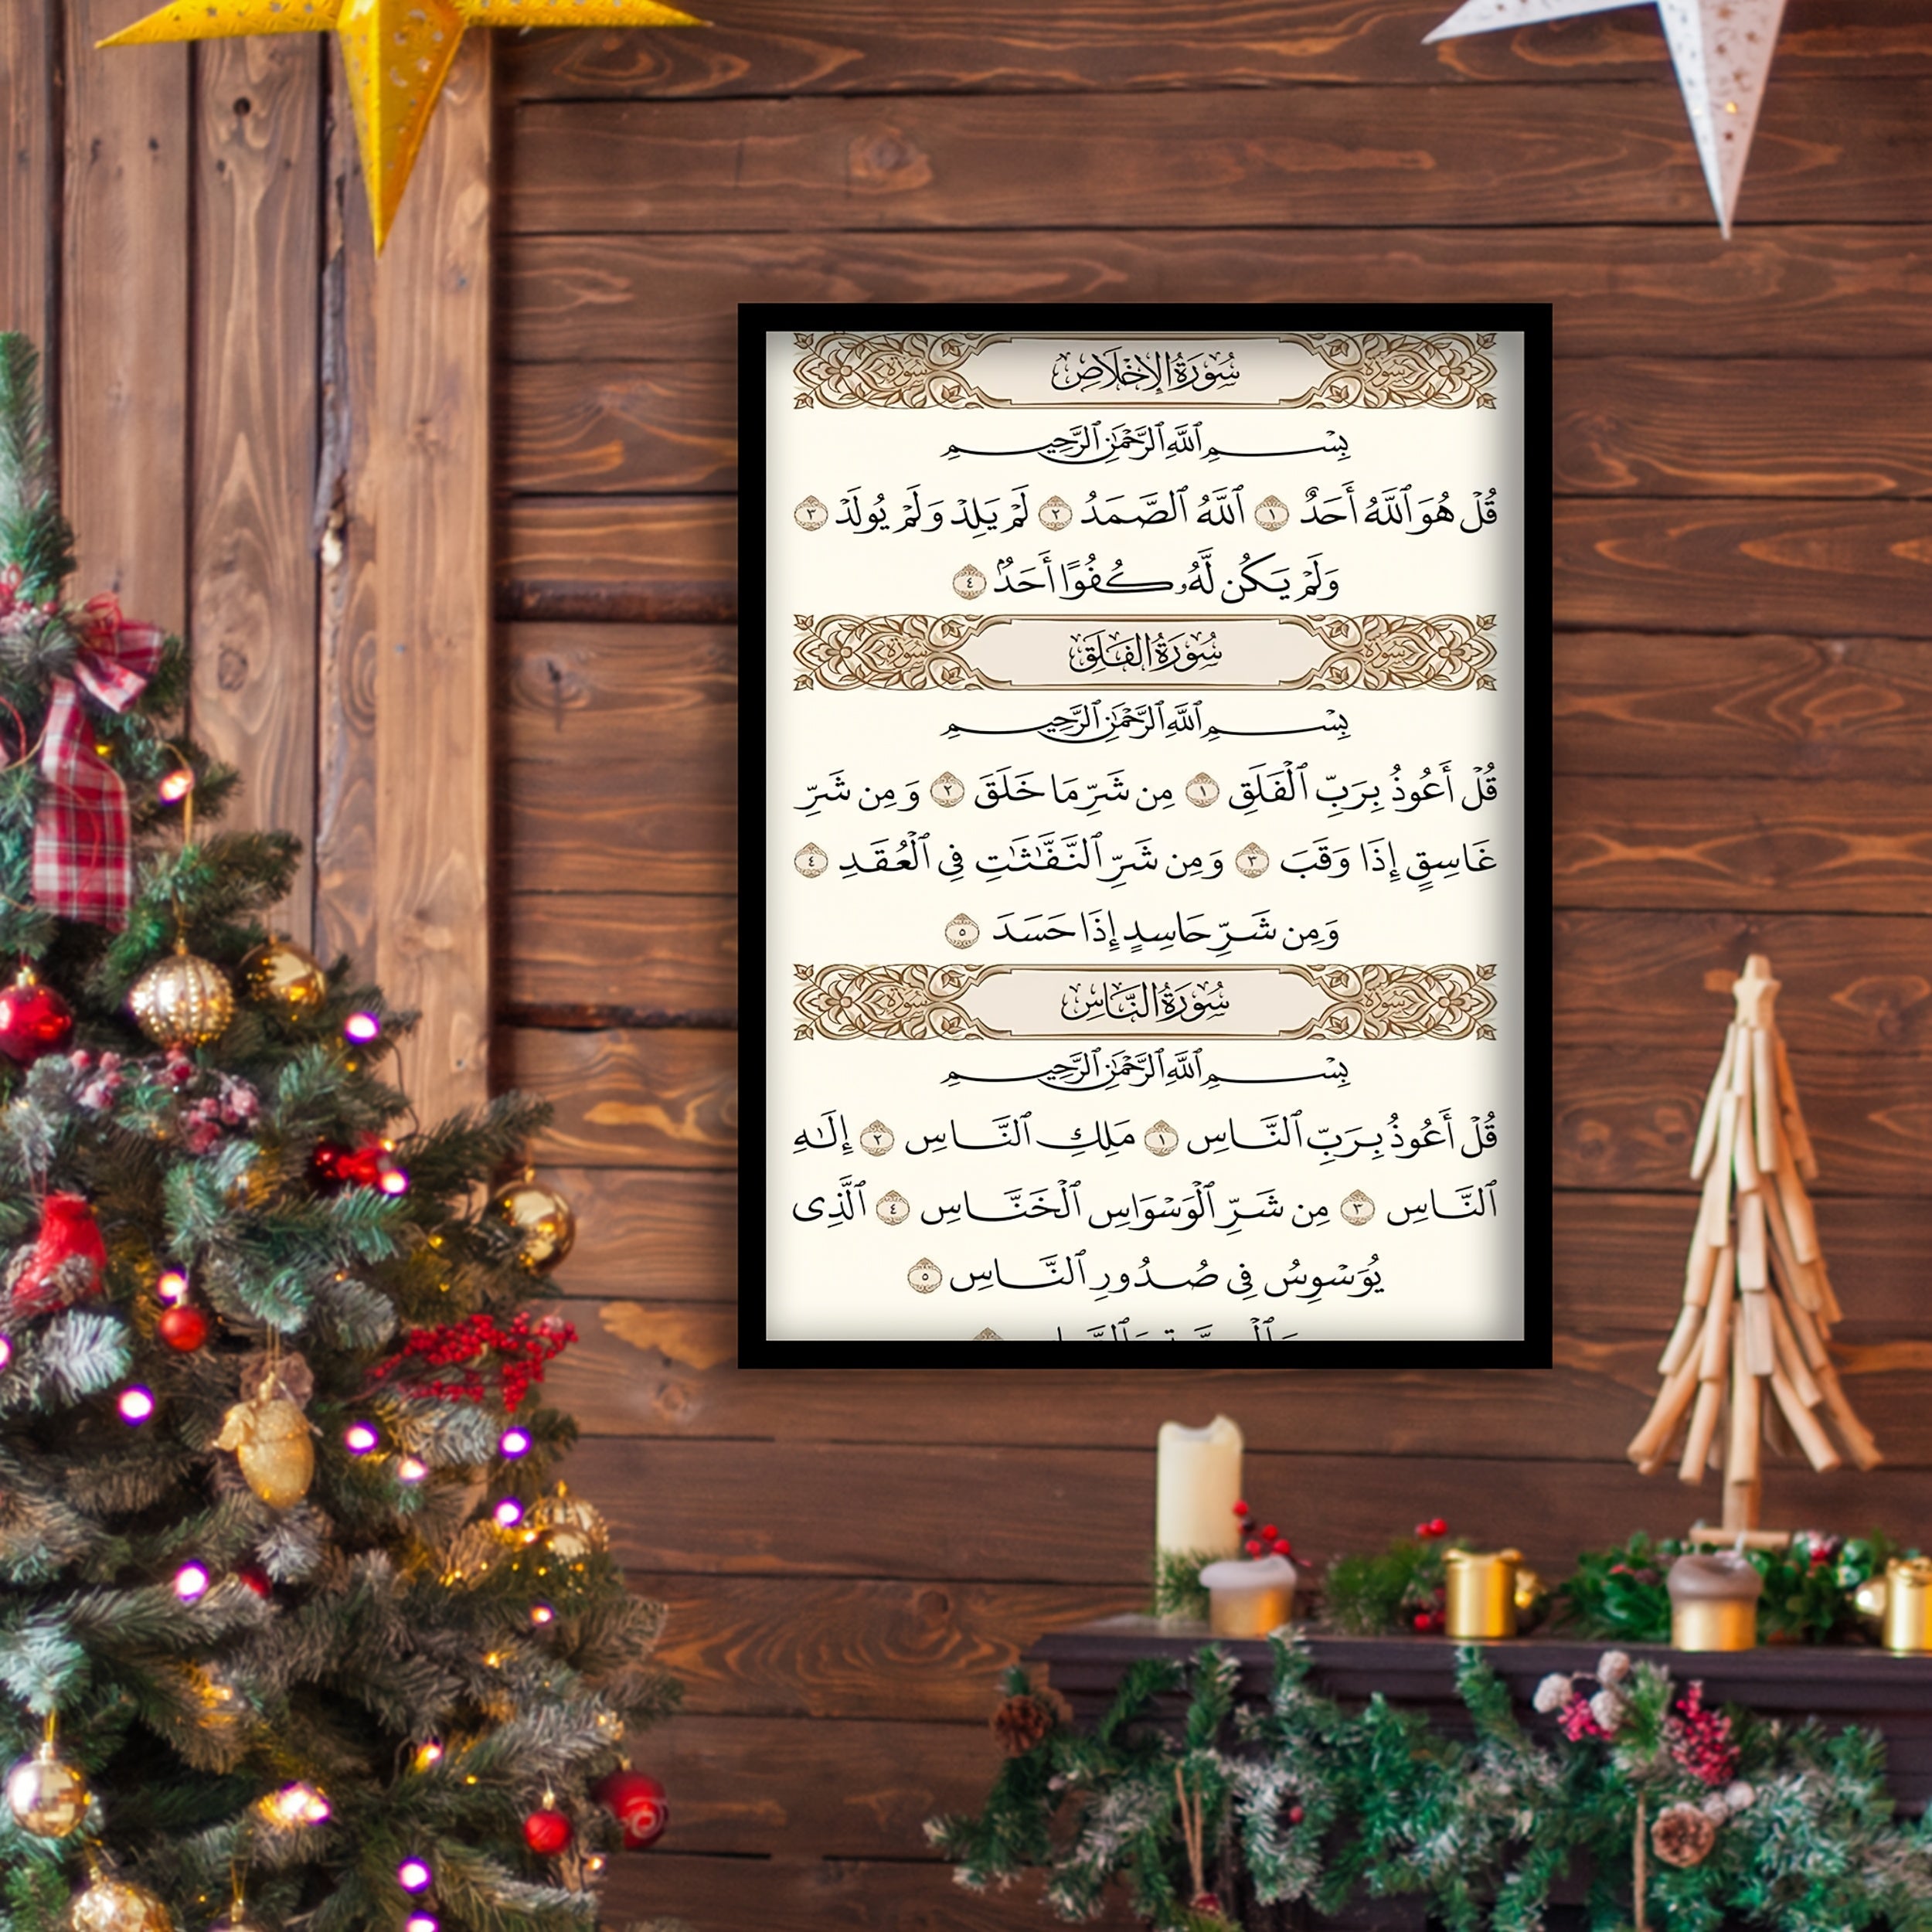 سُورَةُ الإِخْلَاصِ
بِسْمِ ٱللَّهِ ٱلرَّحْمَٰنِ ٱلرَّحِيمِ
قُلْ هُوَ ٱللَّهُ أَحَدٌ ١ ٱللَّهُ ٱلصَّمَدُ ٢ لَمْ يَلِدْ وَلَمْ يُولَدْ ٣
وَلَمْ يَكُن لَّهُۥ كُفُوًا أَحَدٌۢ ٤
سُورَةُ الفَلَقِ
بِسْمِ ٱللَّهِ ٱلرَّحْمَٰنِ ٱلرَّحِيمِ
قُلْ أَعُوذُ بِرَبِّ ٱلْفَلَقِ ١ مِن شَرِّ مَا خَلَقَ ٢ وَمِن شَرِّ
غَاسِقٍ إِذَا وَقَبَ ٣ وَمِن شَرِّ ٱلنَّفَّٰثَٰتِ فِى ٱلْعُقَدِ ٤
وَمِن شَرِّ حَاسِدٍ إِذَا حَسَدَ ٥
سُورَةُ النَّاسِ
بِسْمِ ٱللَّهِ ٱلرَّحْمَٰنِ ٱلرَّحِيمِ
قُلْ أَعُوذُ بِرَبِّ ٱلنَّاسِ ١ مَلِكِ ٱلنَّاسِ ٢ إِلَٰهِ
ٱلنَّاسِ ٣ مِن شَرِّ ٱلْوَسْوَاسِ ٱلْخَنَّاسِ ٤ ٱلَّذِى
يُوَسْوِسُ فِى صُدُورِ ٱلنَّاسِ ٥